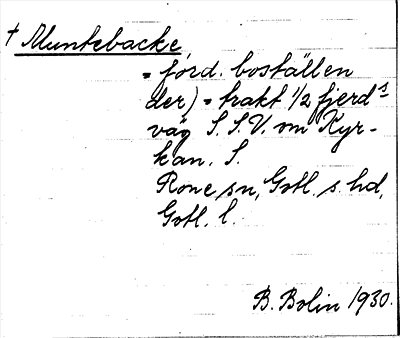 † Muntebacke,
= förd. boställen
der) = trakt 1/2 fjerd s
väg S.S.V. om Kyr-
kan. S.
Rone sn, Gotl. s. hd,
Gotl. l.
B. Bolin 1930.